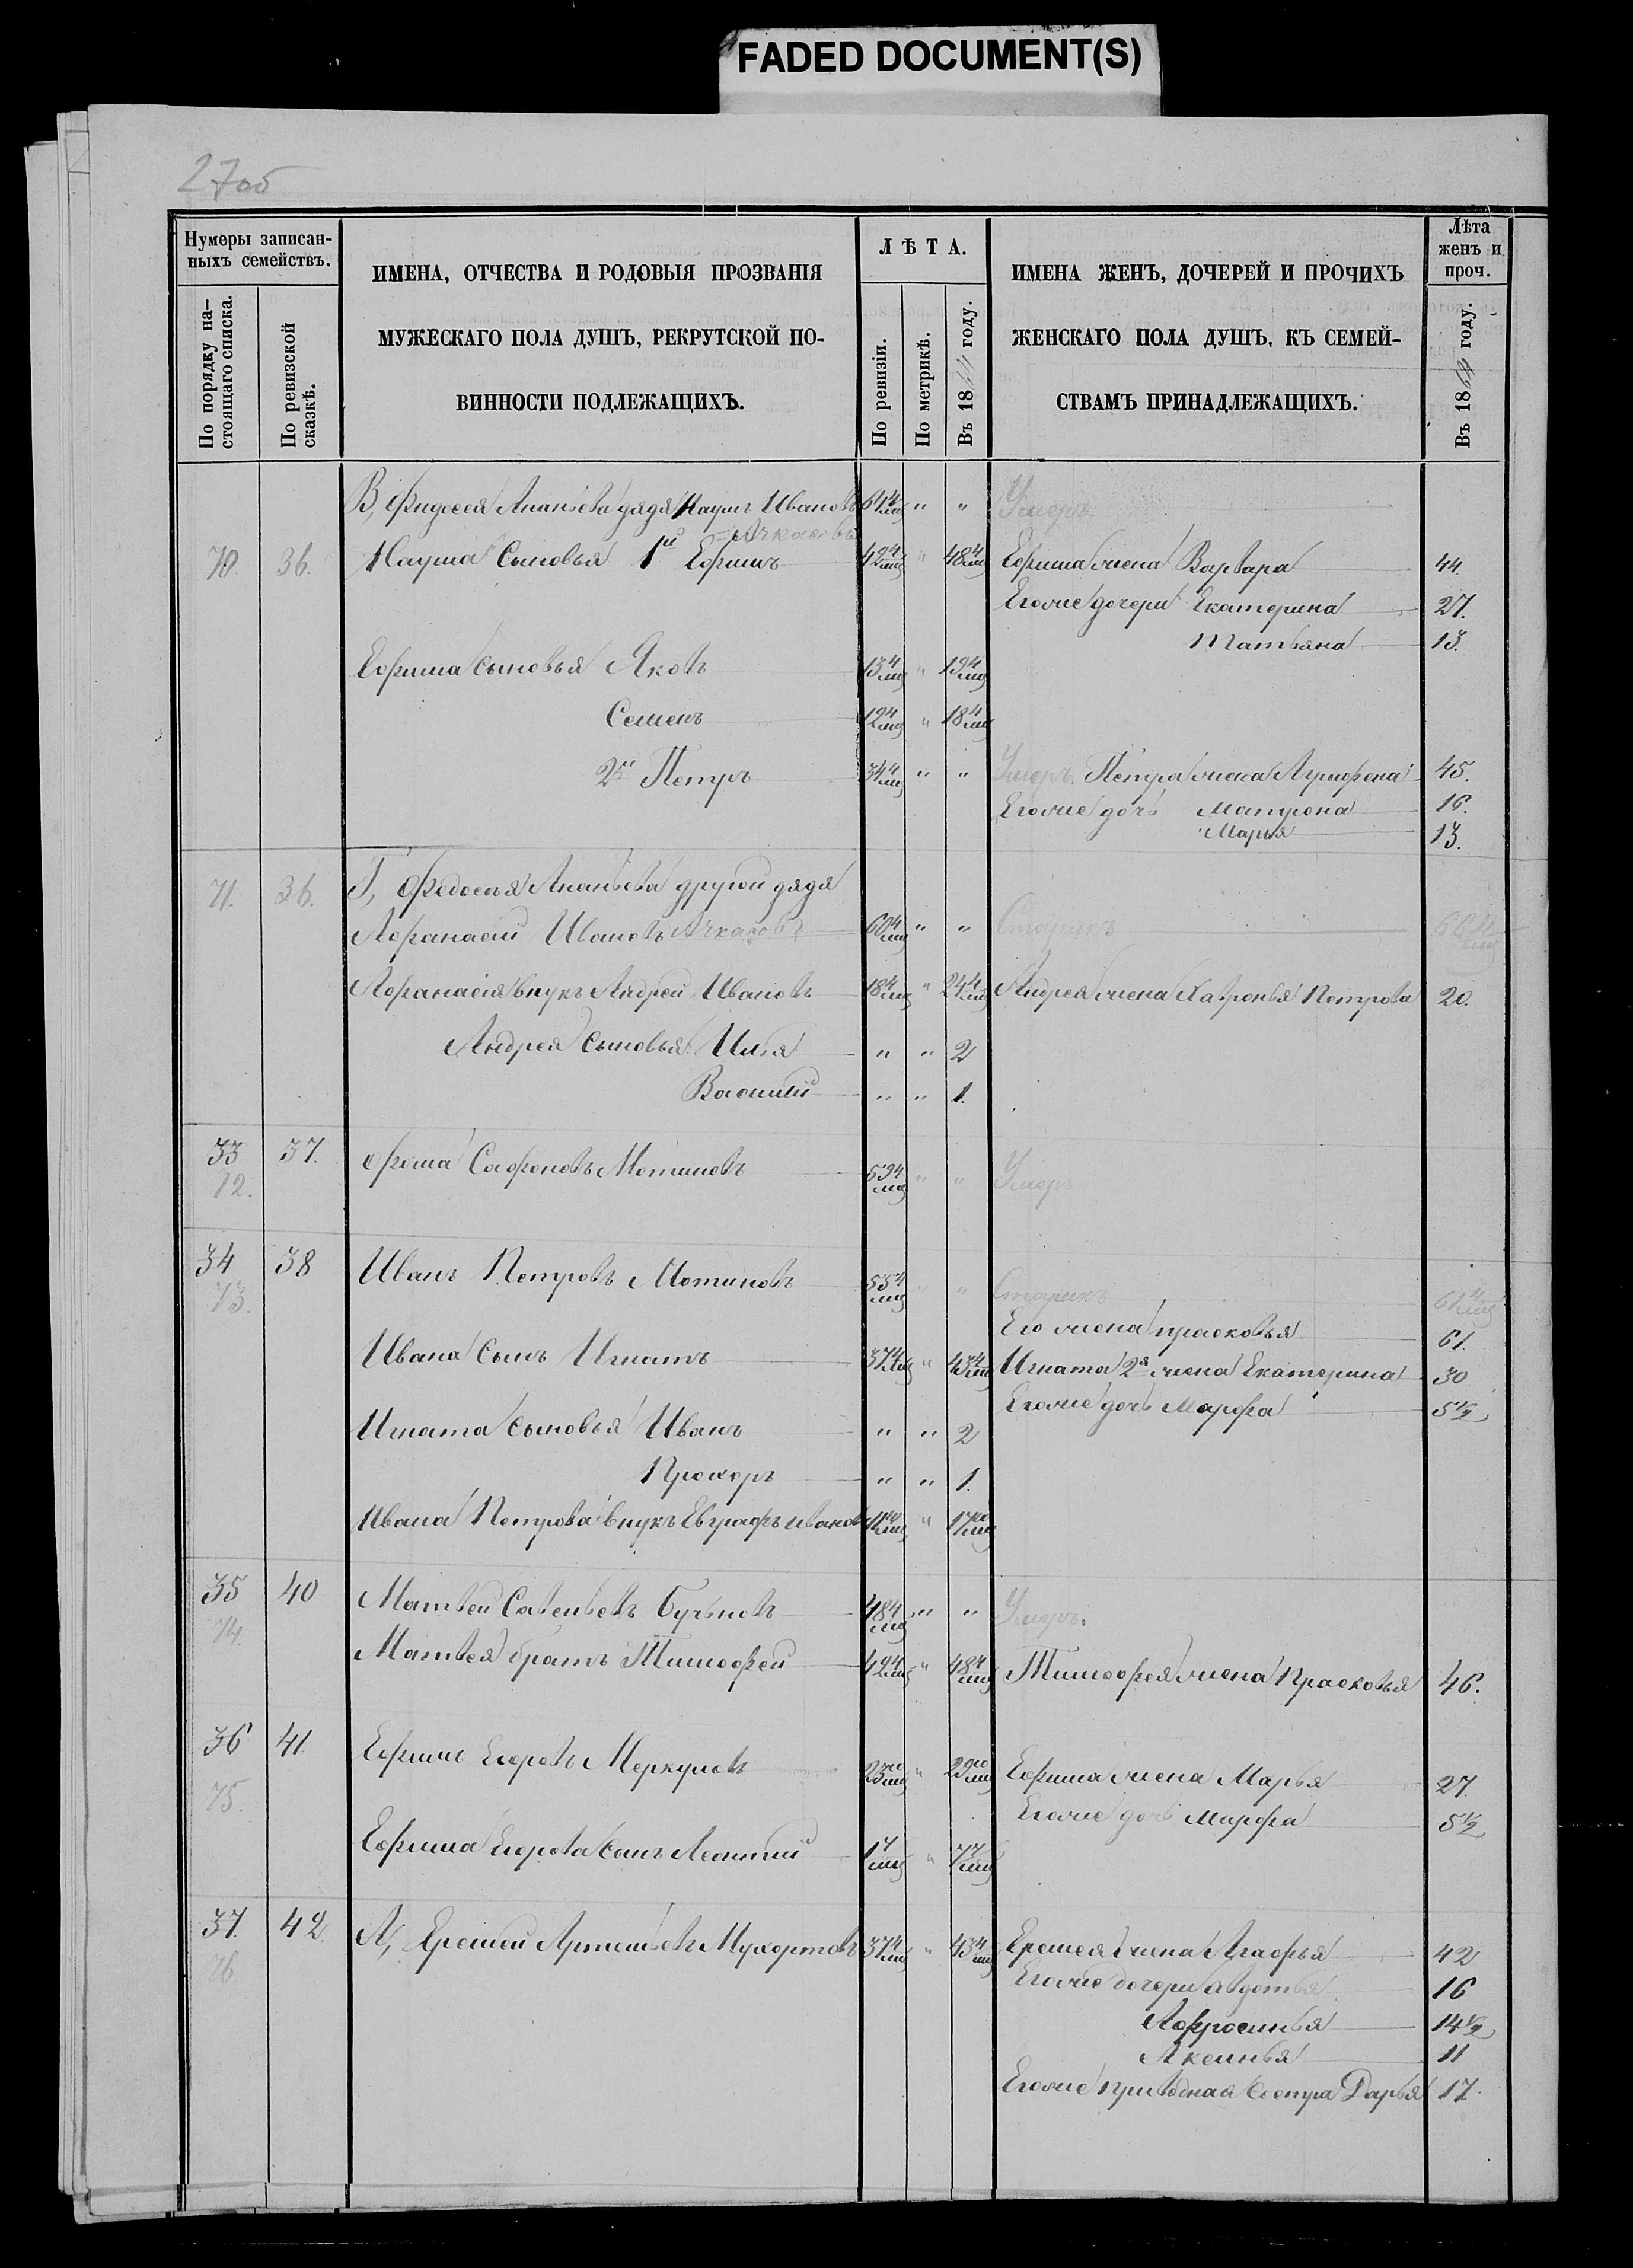 FADED DOCUMENT(S)
27об
Нумеры записан-
ныхъ семействъ.
По порядку на-
стоящаго списка.
По ревизской
сказкѣ.
ИМЕНА, ОТЧЕСТВА И РОДОВЫЯ ПРОЗВАНІЯ
МУЖЕСКАГО ПОЛА ДУШЪ, РЕКРУТСКОЙ ПО-
ВИННОСТИ ПОДЛЕЖАЩИХЪ.
ЛѢТА.
По ревизіи.
По метрикѣ.
Въ 1864 году.
ИМЕНА ЖЕНЪ, ДОЧЕРЕЙ И ПРОЧИХЪ
ЖЕНСКАГО ПОЛА ДУШЪ, КЪ СЕМЕЙ-
СТВАМЪ ПРИНАДЛЕЖАЩИХЪ.
Лѣта
женъ и
проч.
Въ 1864 году.
В, Фидосея Ананьева дядя Наумъ Ивановъ 61 " " Умеръ
70. 36. Наума сыновья 1й Ефимъ 42 " 48 Ефима жена Варвара 44
Еголие дочери Екатерина 27.
Татьяна 13.
Ефима сыновья Яковъ 13 " 19
Семенъ 12 " 18
2й Петръ 34 " " Умеръ. Петра жена Агрофена 45.
Еголие дочь Матрена 16.
Марья 13.
71. 36. Г, Федосея Ананьева другой дядя
Афанасий Ивановъ 60 " " Старикъ 66
Афанасія внукъ Андрей Ивановъ 18 " 24 Андрея жена Хавронья Петрова 20.
Андрея сыновья Илья " " 2
Василий " " 1.
33 37. Фома Сафоновъ Мотиновъ 59 " " Умеръ
72.
34 38 Иванъ Петровъ Мотиновъ 55 " Старикъ 61
73.
Его жена прасковья 61.
Ивана сынъ Игнатъ 37 " 43 Игната 2я жена Екатерина 30
Еголие дочь Марфа 5½
Игната сыновья Иванъ " " 2
Прохоръ " " 1.
Ивана Петрова внукъ Евграфъ Ивановъ 11 " 17
35 40 Матвей Савельевъ 48 " " Умеръ.
74.
Матвея братъ Тимофей 42 " 48 Тимофея жена Прасковья 46.
36 41 Ефимъ Егоровъ Меркуловъ 23 " 29 Ефима жена Марья 27.
75.
Еголие дочь Марфа 5½
Ефима Егорова сынъ Леонтий 1 " 7
37. 42. А, Еремей Артемьевъ Мухортовъ 37 " 43 Еремея жена Агафья 42
76
Еголие дочери Авдотья 16
Афросинья 14½
Аксинья 11
Еголие приводная сестра Дарья 17.